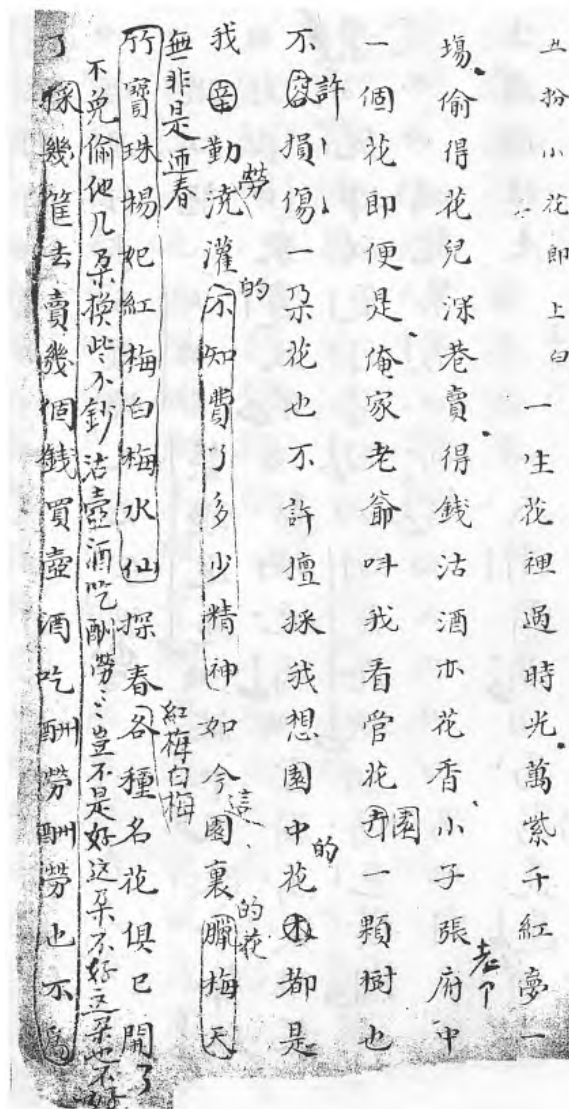 丑扮小花郎上白　一生花裡過時光萬紫千紅夢一
場偷得花兒深巷賣得錢沽酒亦花香小子張府中
老爷
一個花即便是俺家老爺呌我看管花卉一顆樹也
園
不容損傷一朵花也不許擅採我想園中花木都是
許
的
我辛勤澆灌不知費了多少精神如今園裏臘梅天
勞
的
這
的花
無非是迎春
竹寶珠楊妃紅梅白梅水仙探春各種名花俱已開了
紅梅白梅
不免偷他几朵換些小鈔沽壺酒吃酬勞酬勞豈不是好这朵不好这朵也不好
了採幾筐去賣幾個錢買壺酒吃酬勞酬勞也不為